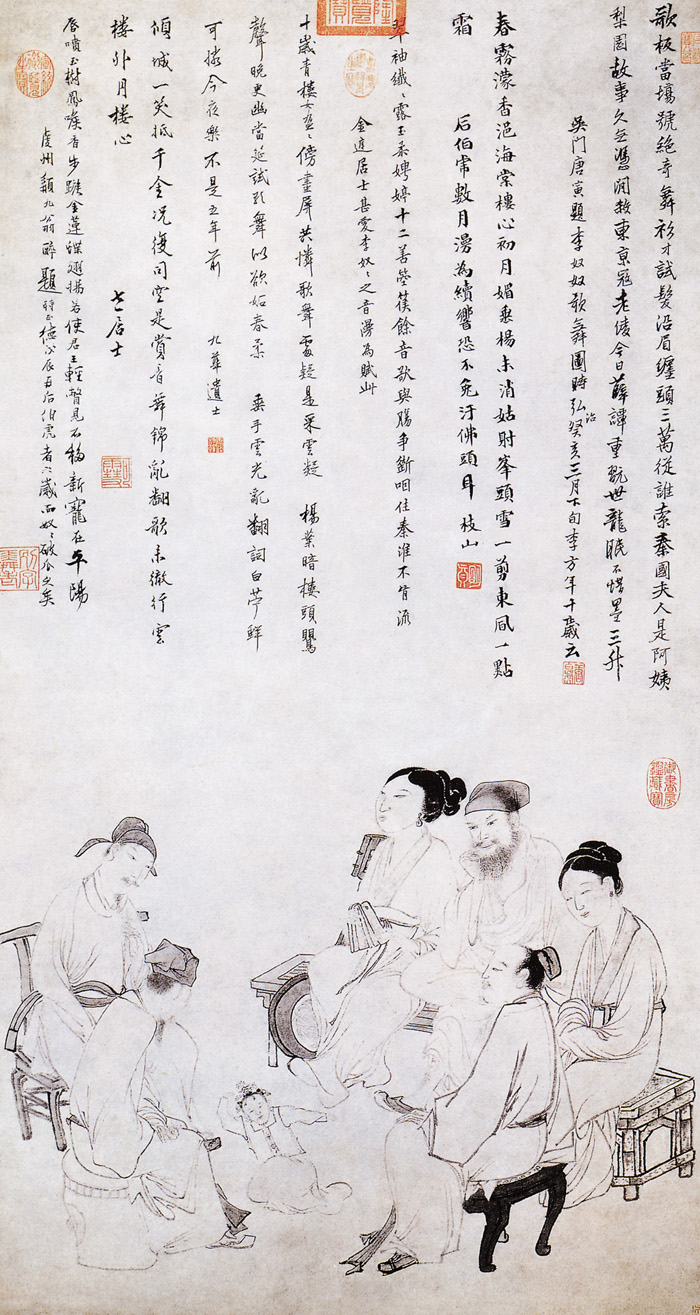 歌板當場號絕奇舞衫才試髮沿眉纏頭三萬從誰索秦國夫人是阿姨
梨園故事久無憑閒教東京冠老陵今日薛譚重翫世龍眠不惜墨三升
吳門唐寅題李奴奴歌舞圖時弘治癸亥三月下旬李方年十歲云
春霧濛香浥海棠樓心初月媚垂楊未消姑射峯頭雪一剪東風一點
霜 后伯虎數月漫為續響恐不免汙佛頭耳 枝山
翠袖纖〻露玉柔娉婷十二善箜篌餘音欲與腸爭斷咽住秦淮不肯流
居士甚愛李奴〻之音漫為賦此
十歲青樓女 傍畫屏共憐歌舞處疑是采雲凝 楊葉暗樓頭鶯
聲晚更幽當延試歌舞似欲妬春柔 垂手雲光亂翻詞白苧鮮
可憐今夜樂不是五年前 九華遺士
傾城一笑抵千金況復同 是賞音舞錦亂翻歌未徹行雲
樓外月樓心 居士
唇噴玉樹鳳喉香步 金蓮蝶翅揚若使君王輕瞥見不移新寵在平陽
虔州 九翁醉題 伯虎者六歲而奴〻破瓜久矣